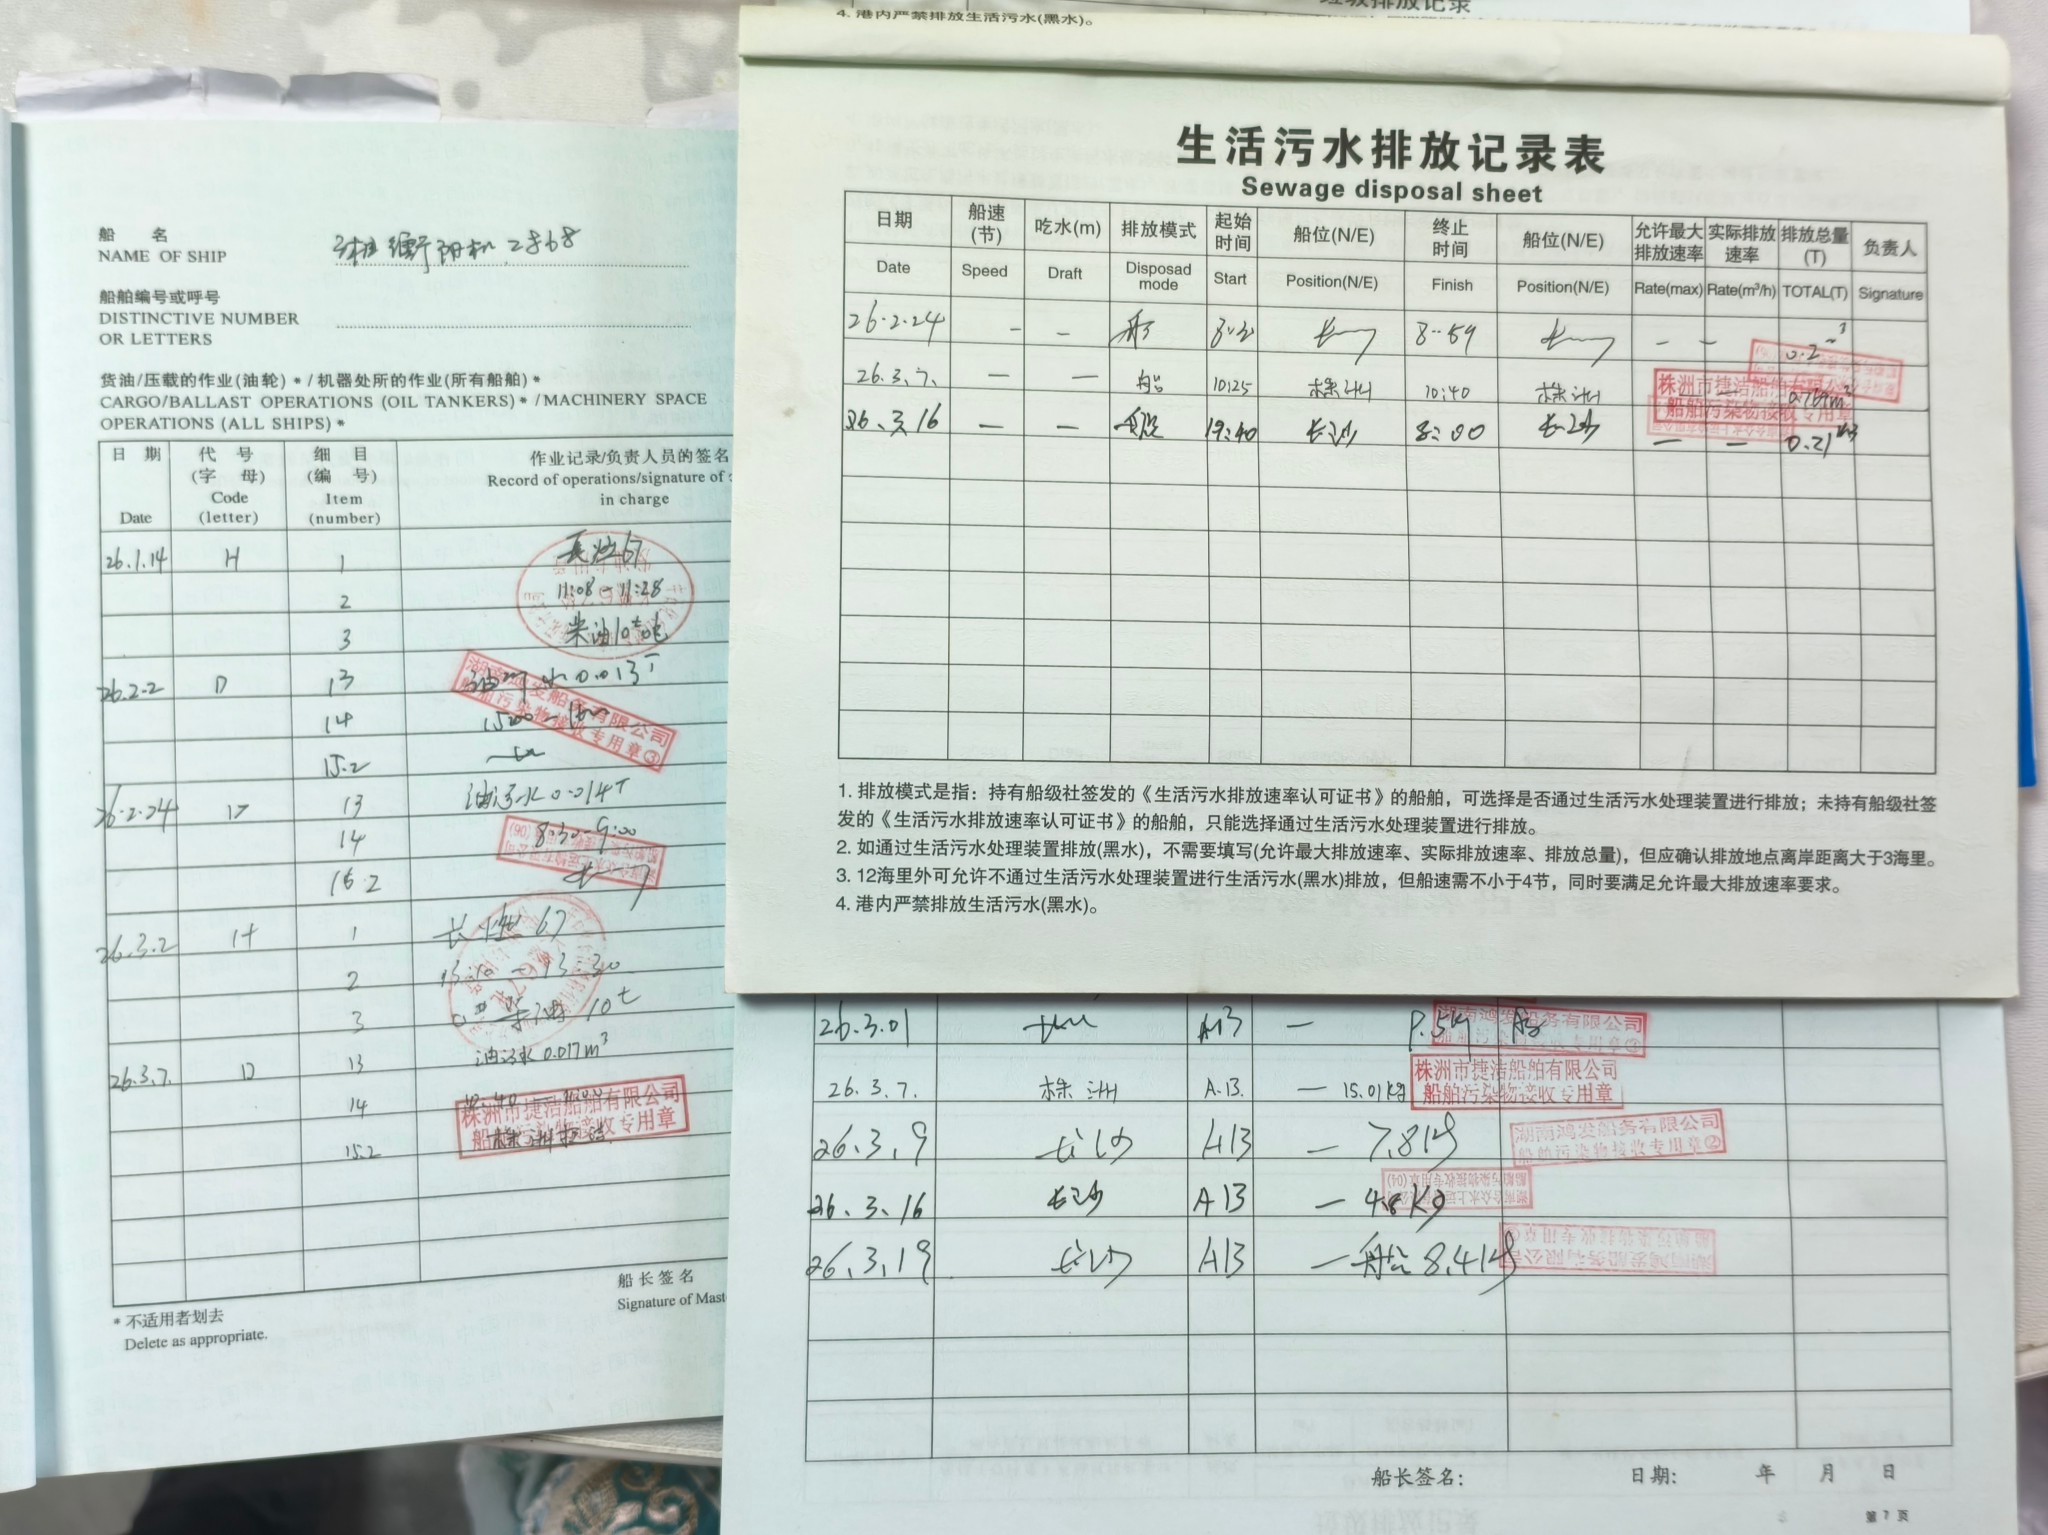 4. 港内严禁排放生活污水(黑水)。
船 名
NAME OF SHIP
2868
船舶编号或呼号
DISTINCTIVE NUMBER
OR LETTERS
货油/压载的作业(油轮)*/机器处所的作业(所有船舶)*
CARGO/BALLAST OPERATIONS (OIL TANKERS)*/MACHINERY SPACE
OPERATIONS (ALL SHIPS)*
日 期 代 号 细 目 作业记录/负责人员的签名
(字 母) (编 号) Record of operations/signature of
Code Item in charge
Date (letter) (number)
26.1.14 H 1 67
2 11:08-11:28
3 柴油10t
26.2.2 D 13 0.013T
14
15.2
湖南鸿发船务有限公司
船舶污染物接收专用章③
26.2.24 D 13 油污水0.014T
14 8:30-9:00
15.2
26.3.2 H 1 67
2
3 柴油10t
26.3.7. D 13 油污水0.017m³
14
15.2
株洲市捷洁船舶有限公司
船舶污染物接收专用章
* 不适用者划去
Delete as appropriate.
船长签名
Signature of Mast
生活污水排放记录表
Sewage disposal sheet
日期 船速(节) 吃水(m) 排放模式 起始时间 船位(N/E) 终止时间 船位(N/E) 允许最大排放速率 实际排放速率 排放总量(T) 负责人
Date Speed Draft Disposad mode Start Position(N/E) Finish Position(N/E) Rate(max) Rate(m³/h) TOTAL(T) Signature
26.2.24 - - 船 8:59 - - 0.2
26.3.7. — — 船 10:25 株洲 10:40 株洲
株洲市捷洁船舶有限公司
船舶污染物接收专用章
26.3.16 — — 船 19:40 长沙 8:00 长沙 — — 0.21m3
1. 排放模式是指：持有船级社签发的《生活污水排放速率认可证书》的船舶，可选择是否通过生活污水处理装置进行排放；未持有船级社签
发的《生活污水排放速率认可证书》的船舶，只能选择通过生活污水处理装置进行排放。
2. 如通过生活污水处理装置排放(黑水)，不需要填写(允许最大排放速率、实际排放速率、排放总量)，但应确认排放地点离岸距离大于3海里。
3. 12海里外可允许不通过生活污水处理装置进行生活污水(黑水)排放，但船速需不小于4节，同时要满足允许最大排放速率要求。
4. 港内严禁排放生活污水(黑水)。
26.3.01 A13 — 船
湖南鸿发船务有限公司
26.3.7. 株洲 A.13. — 15.01kg
株洲市捷洁船舶有限公司
船舶污染物接收专用章
26.3.9 长沙 A13 — 7.8kg
湖南鸿发船务有限公司
船舶污染物接收专用章②
26.3.16 长沙 A13 — 4.8Kg
26.3.19 长沙 A13 — 8.4kg
船长签名: 日期: 年 月 日
第 7 页